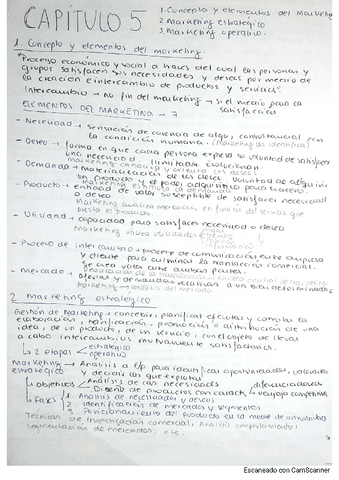 CAPÍTULO 5
1. Concepto y elementos del marketing
2. Marketing estratégico
3. Marketing operativo.
1. Concepto y elementos del marketing
"Proceso económico y social a través del cual las personas y
grupos satisfacen sus necesidades y deseos por medio de
la creación e intercambio de productos y servicios"
Intercambio → no fin del marketing → si el medio para la
satisfacción
ELEMENTOS DEL MARKETING → 7
- Necesidad → sensación de carencia de algo, consustancial con
la condición humana. (Marketing las identifica)
- Deseo → forma en que cada persona expresa su voluntad de satisfacer
una necesidad. → ilimitados
- Demanda → materialización de los deseos. Voluntad de adquirir
un producto y el poder adquisitivo para hacerlo.
Marketing estimula la demanda
- Producto → entidad de valor susceptible de satisfacer necesidad
o deseo
Marketing en función del servicio que
presta el producto
- Utilidad → capacidad para satisfacer necesidad o deseo
Marketing
- Proceso de intercambio → proceso de comunicación entre empresa
y cliente para culminar la transacción comercial.
Se crea valor entre ambas partes.
- Mercado → Ofertas y demandas relativas a un bien determinado
Marketing → análisis del mercado
2. Marketing estratégico
Gestión de Marketing → concebir, planificar, ejecutar y controlar la
elaboración, tarificación, promoción o distribución de una
idea, de un producto, de un servicio, con el objeto de llevar
a cabo intercambios mutuamente satisfactorios.
↳ 2 etapas
estratégico
operativo
Marketing estratégico → Análisis a l/p para identificar oportunidades,
y decidir las que explotar
↳ objetivos
Análisis de las necesidades
Diseño de productos con caract. diferenciadoras → ventaja competitiva
↳ Fases
1. Análisis de necesidades y deseos
2. Identificación de mercados y segmentos
3. Posicionamiento del producto en la mente de
Técnicas de investigación comercial, Análisis comportamientos
segmentación de mercados, etc.
Escaneado con CamScanner